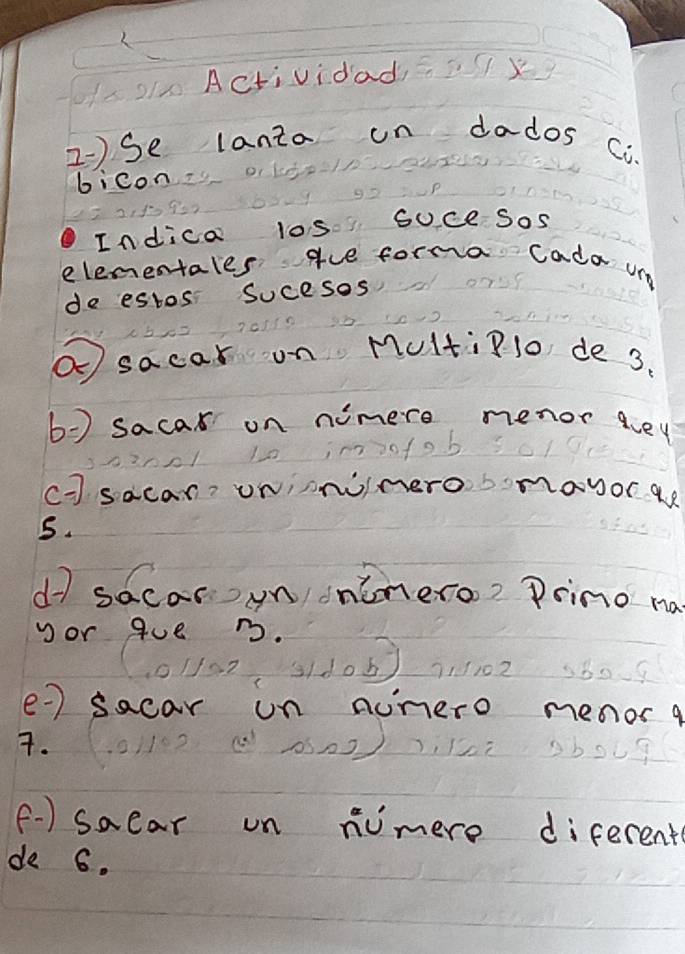 Actividad
2-) Se lanza un dados Cú.
bicon
Indica los sucesos
elementales que forma Cada uno
de estos Sucesos
a) sacar un MultiPlo de 3.
b-) sacar un número menor que 4
c-) sacar un número mayor que
5.
d-) sacar un número Primo ma
yor que 3.
e-) sacar un número menor q
7.
f-) sacar un número diferente
de 6.